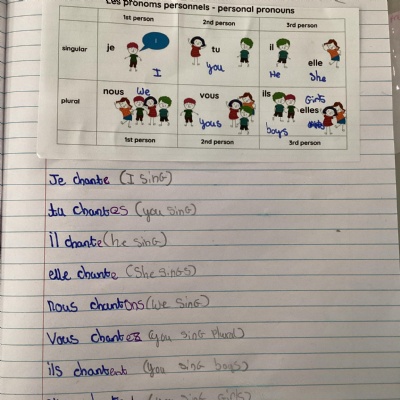 Les pronoms personnels - personal pronouns
1st person 2nd person 3rd person
singular je I tu you il He elle She
plural nous we vous yous ils boys Girls elles
1st person 2nd person 3rd person
Je chante (I sinG)
tu chantes (you sinG)
il chante (he sinG)
elle chante (She sinGs)
nous chantons (we sinG)
Vous chantez (you sinG plural)
ils chantent (you sing boys)